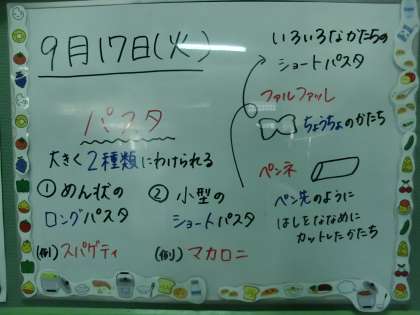 9月17日(火)
パスタ
大きく2種類にわけられる
①めん状の
ロングパスタ
(例)スパゲティ
②小型の
ショートパスタ
(例)マカロニ
いろいろなかたちの
ショートパスタ
ファルファッレ
ちょうちょのかたち
ペンネ
ペン先のように
はしをななめに
カットしたかたち